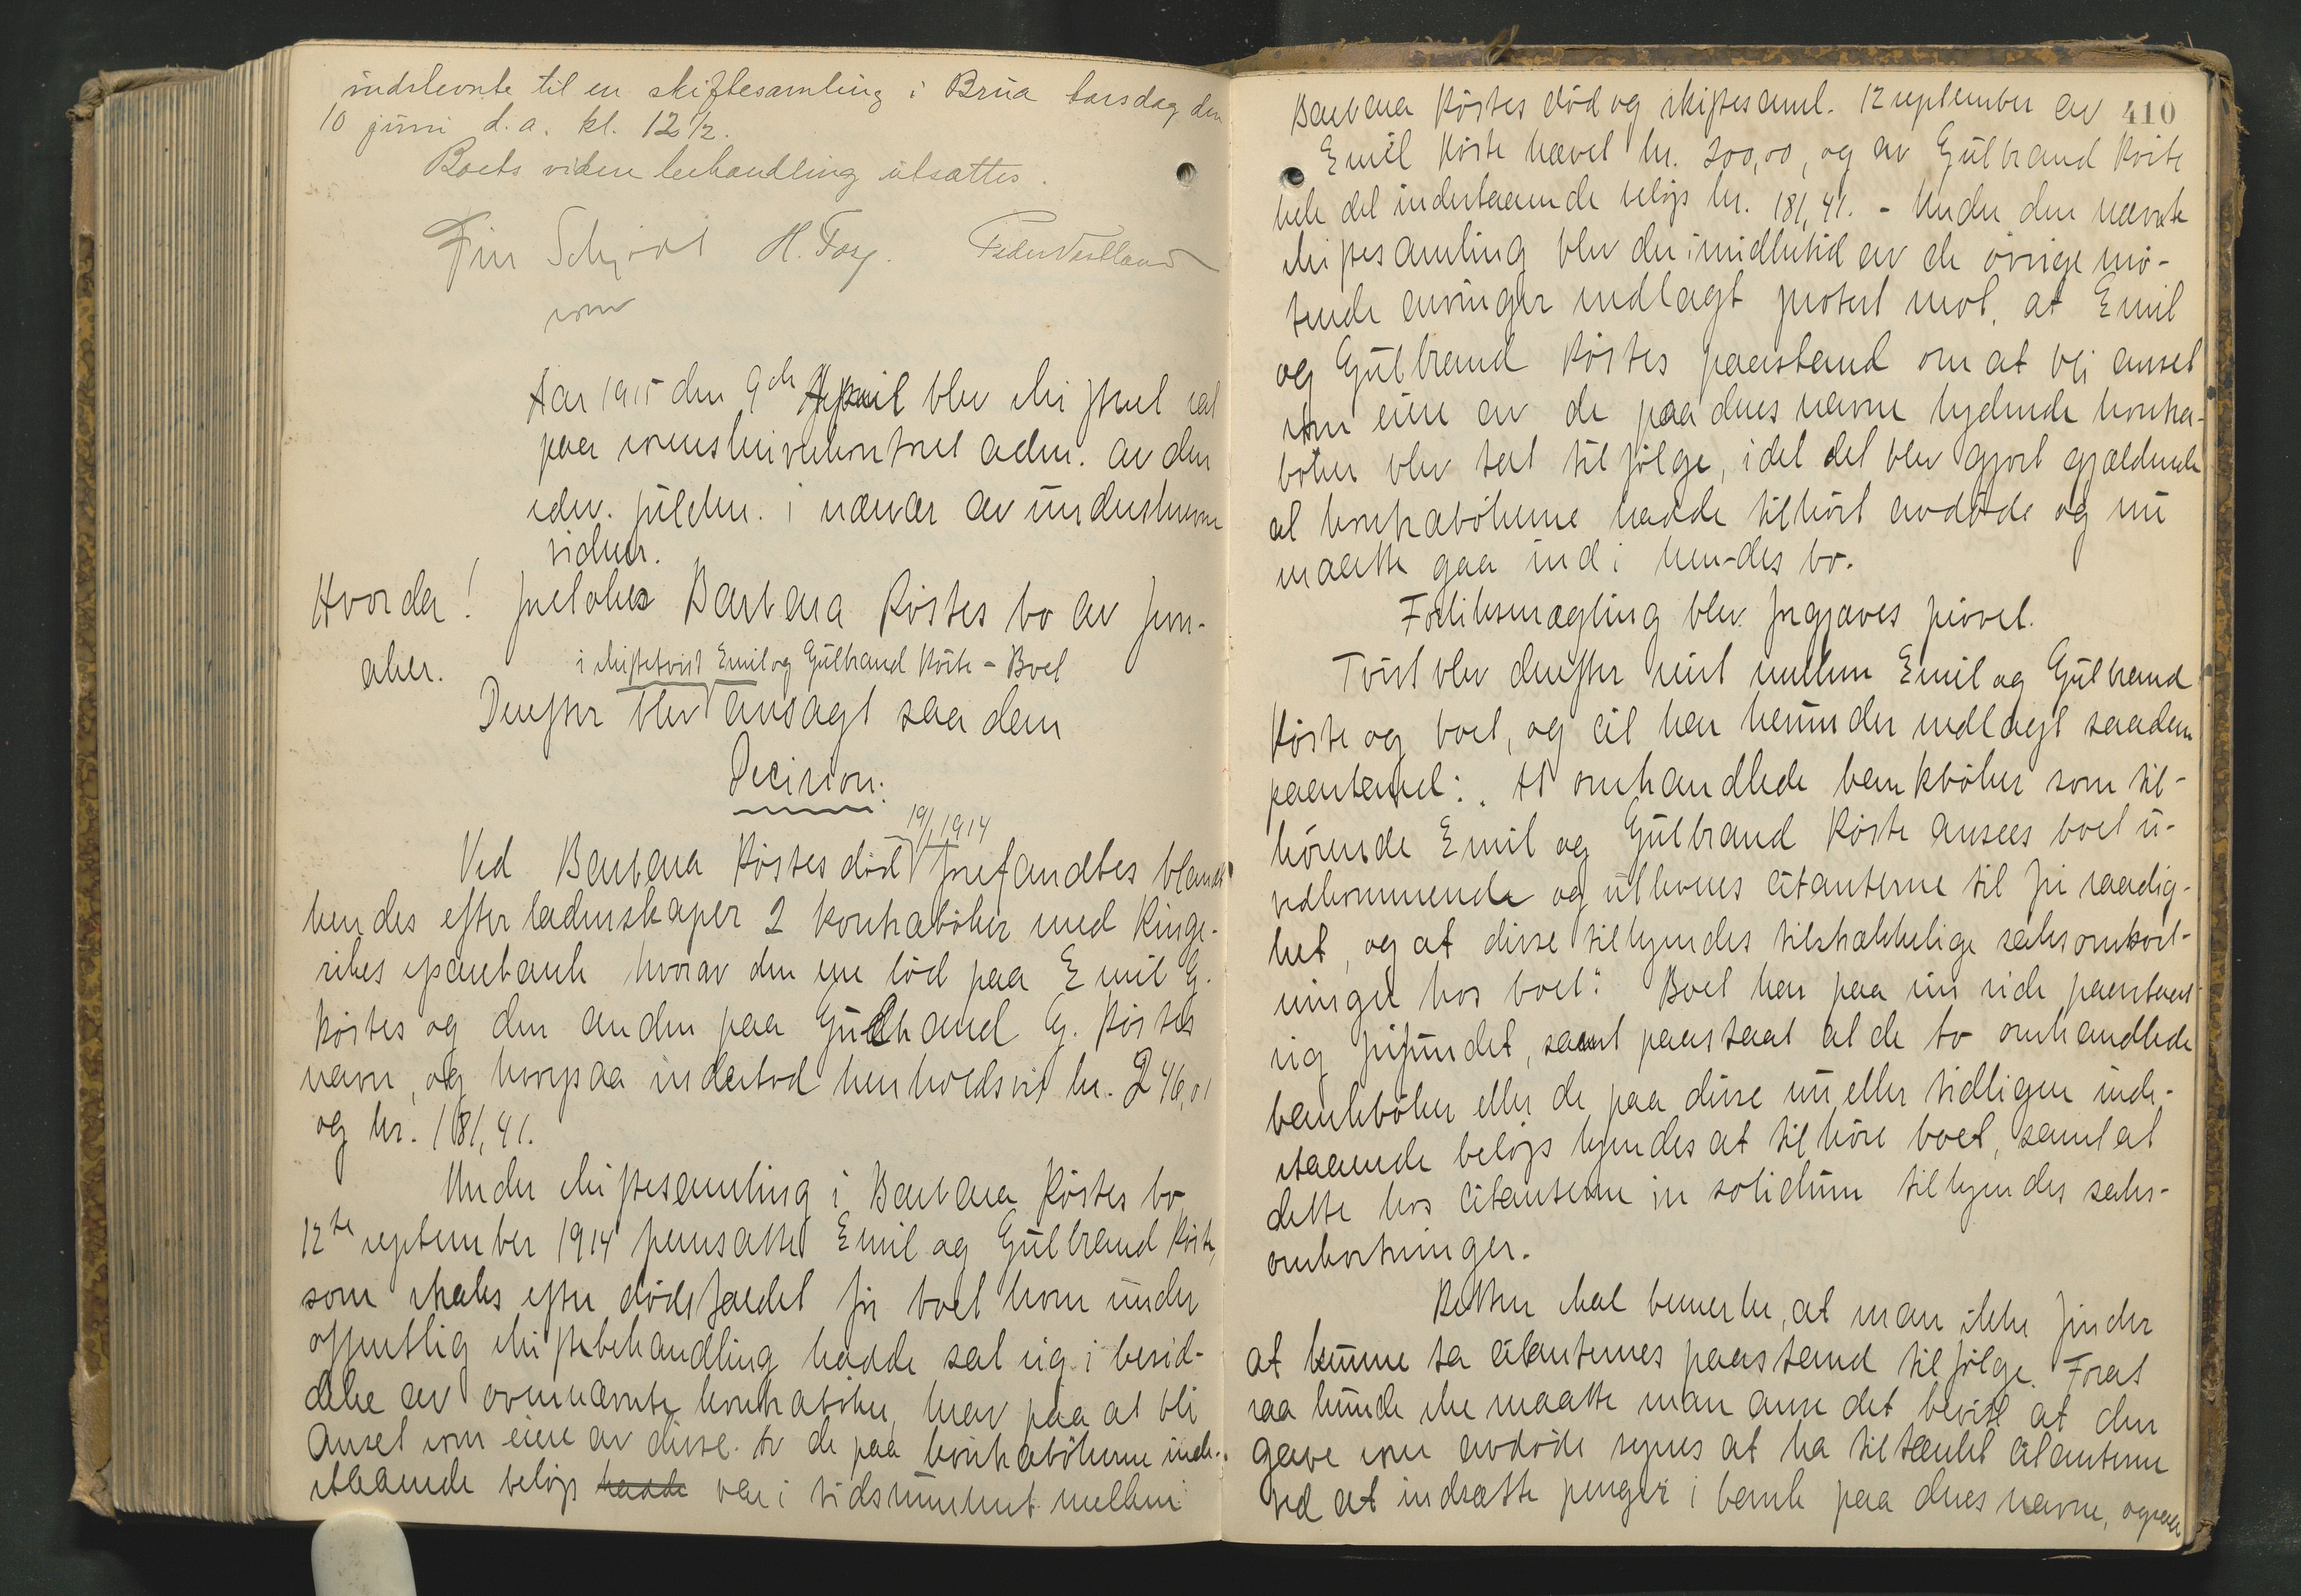 indstevnte til en skiftesamling i Brua torsdag den
10 juni d. a. kl. 12 1/2.
Boets videre behandling utsattes.
Finn Schjødt H. Fos. Peder Vestland
som
Aar 1915 den 9de April blev skifteret sat
paa sorenskriverkontoret adm. av den
edsv. fuldm. i nærvær av underskrevne
vidner.
Hvorda! foretokes Barbara Røstes bo av Jevn-
aker.
i skiftetvist Emil og Gulbrand Røste - Boet
Derefter blev avsagt saadan
Decision:
19/1 1914
Ved Barbara Røstes død forefandtes blandt
hendes efterladenskaper 2 kontrabøker med Ringe-
rikes sparebank hvorav den ene lød paa Emil G.
Røstes og den anden paa Gulbrand G. Røstes
navn, og hvorpaa indestod henholdsvis kr. 246,01
og kr. 181,41.
Under skiftesamling i Barbara Røstes bo
12te september 1914 fremsatte Emil og Gulbrand Røste,
som straks efter dødsfaldet før boet kom under
offentlig skiftebehandling hadde sat sig i besid-
delse av ovennævnte kontrabøker, krav paa at bli
anset som eiere av disse. Av de paa kontrabøkerne inde-
staaende beløp hadde var i tidsrummet mellem
410
Barbara Røstes død og skiftesaml. 12 september av
Emil Røste hævet kr. 200,00, og av Gulbrand Røste
hele det indestaaende beløp kr. 181,41. - Under den nævnte
skiftesamling blev der imidlertid av de øvrige mø-
tende arvinger nedlagt protest mot, at Emil
og Gulbrand Røstes paastand om at bli anset
som eiere av de paa deres navne lydende kontra-
bøker blev tat tilfølge, idet det blev gjort gjældende
at kontrabøkerne hadde tilhørt avdøde og nu
maatte gaa ind i hendes bo.
Forliksmægling blev forgjæves prøvet.
Tvist blev derefter reist mellem Emil og Gulbrand
Røste og boet, og cit. har herunder nedlagt saadan
paastand: "At omhandlede bankbøker som til-
hørende Emil og Gulbrand Røste ansees boet u-
vedkommende og utleveres citanterne til fri raadig-
het, og at disse tilkjendes tilstrækkelige saksomkost-
ninger hos boet." Boet har paa sin side paastaat
sig frifundet, samt paastaat at de to omhandlede
bankbøker eller de paa disse nu eller tidligere inde-
staaende beløp kjendes at tilhøre boet, samt at
dette hos citanterne in solidum tilkjendes saks-
omkostninger.
Retten skal bemerke, at man ikke finder
at kunne ta citanternes paastand tilfølge. Forat
saa kunde ske maatte man anse det bevist at den
gave som avdøde synes at ha tiltænkt citanterne
ved at indsætte penger i bank paa deres navne, ogsaa